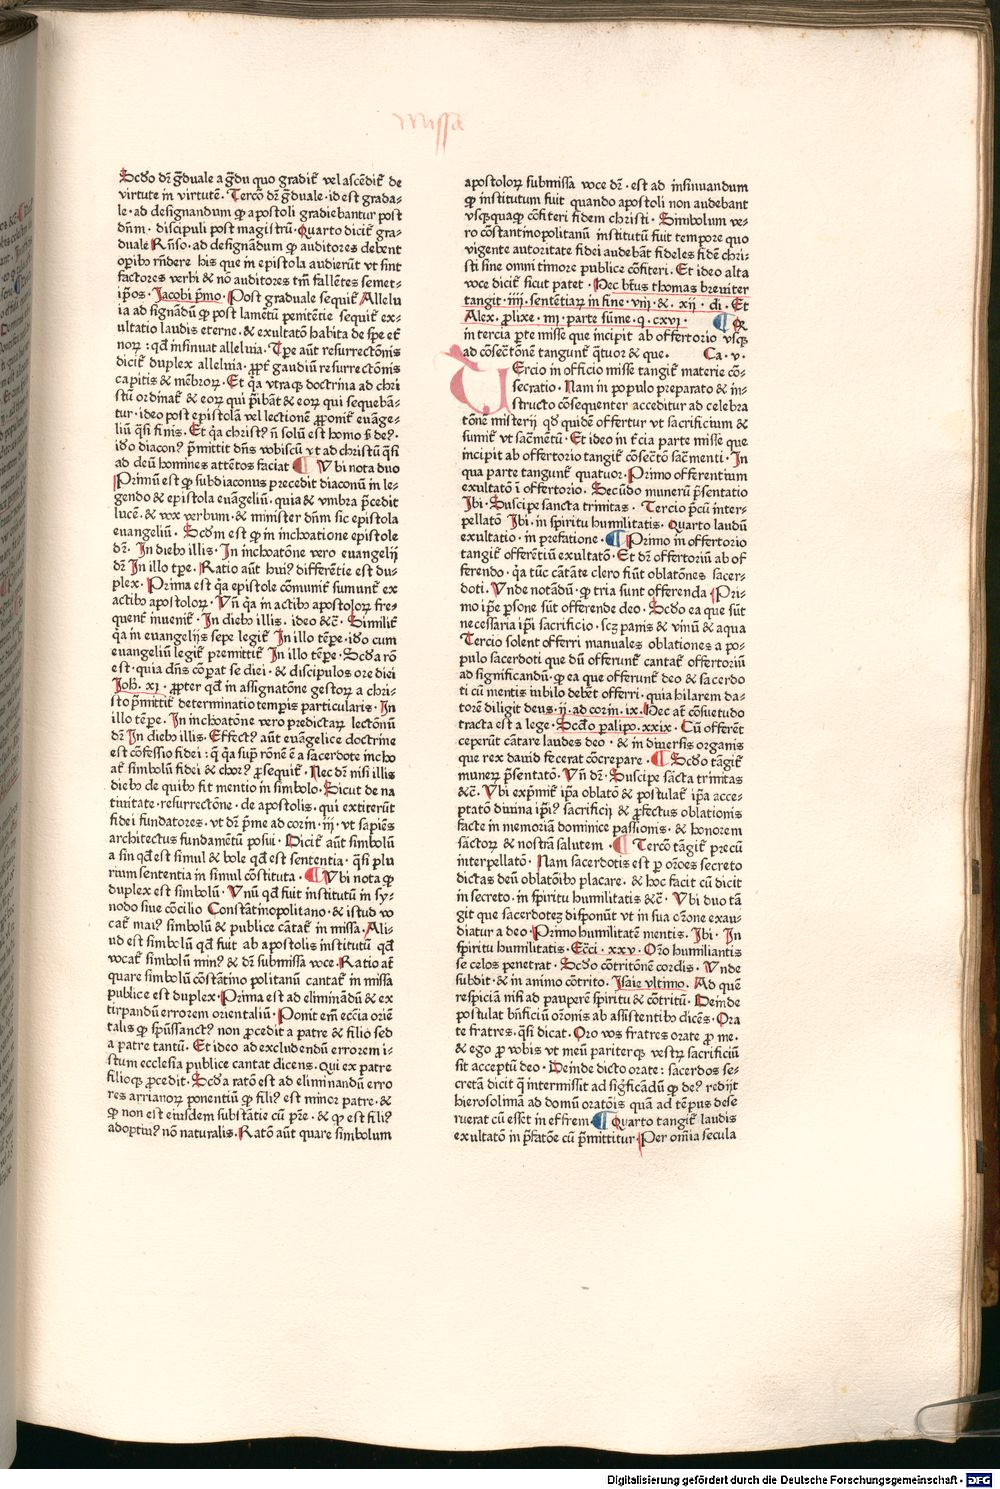 missa
Scđo dr̄ g̃duale a g̃du quo gradit᷑ vel ascēdit᷑ de
virtute in virtutē. Tercō dr̄ g̃duale · id est grada-
le · ad designandum ꝙ apostoli gradiebantur post
dn̄m · discipuli post magistrū · Quarto dicit᷑ gra-
duale Rn̄so · ad designādum ꝙ auditores debent
opibꝰ rn̄dere his que in epistola audierūt vt sint
factores verbi & nō auditores tm̄ fallētes semet-
ip̄os · Jacobi p̄mo · Post graduale sequit᷑ Allelu
ia ad signādū ꝙ post lamētū penitētie sequit᷑ ex-
ultatio laudis eterne · & exultatō habita de spe et᷑
noꝝ : qđ insinuat alleluia · Tpe aūt resurrectōnis
dicit᷑ duplex alleluia · ꝓpt᷑ gaudiū resurrectōnis
capitis & mēbroꝝ · Et q̄a vtraqꝫ doctrina ad chri
stū ordinat᷑ & eoꝝ qui p̄ibāt & eoꝝ qui sequebā-
tur · ideo post epistolā vel lectionē ꝓponit᷑ euāge-
liū q̄si finis · Et q̄a christꝰ n̄ solū est homo s̄ deꝰ ·
iđo diaconꝰ p̄mittit dn̄s vobiscū vt ad christū q̄si
ad deū homines attētos faciat ¶ Vbi nota duo
Primū est ꝙ subdiaconus precedit diaconū in le-
gendo & epistola euāgeliū · quia & vmbra p̄cedit
lucē · & vox verbum · & minister dn̄m sic epistola
euangeliū · Scđm est ꝙ in inchoatione epistole
dr̄ · In diebꝰ illis · In inchoatōne vero euangelij
dr̄ In illo tp̄e · Ratio aūt huiꝰ differētie est du-
plex · Prima est q̄a epistole cōmunit᷑ sumunt᷑ ex
actibꝰ apostoloꝝ · Vn̄ q̄a in actibꝰ apostoloꝝ fre-
quent᷑ inuenit᷑ · In diebꝰ illis · ideo &c̄ · Similit᷑
q̄a in euangelijs sepe legit᷑ In illo tēpe · iđo cum
euangeliū legit᷑ premittit᷑ In illo tēpe · Scđa rō
est · quia dn̄s cōpat se diei · & discipulos ore diei
Joh̄ · xi · ꝓpter qđ in assignatōne gestoꝝ a chri-
sto p̄mittit᷑ determinatio tempis particularis · In
illo tēpe · In inchoatōne vero predictaꝝ lectōnū
dr̄ In diebꝰ illis · Effectꝰ aūt euāgelice doctrine
est cōfessio fidei : q̄ q̄a sup̄ rōnē ē a sacerdote inchꝰ
at᷑ simbolū fidei & choꝝꝰ ꝓsequit᷑ · Nec dr̄ nisi illis
diebꝰ de quibꝰ fit mentio in simbolo · Sicut de na
tiuitate · resurrectōne · de apostolis · qui extiterūt
fidei fundatores · vt dr̄ p̄me ad corin · iij · vt sapiēs
architectus fundamētū posui · Dicit᷑ aūt simbolū
a sin qđ est simul & bole qđ est sententia · q̄si plu
rium sententia in simul cōstituta · ¶ Vbi nota ꝙ
duplex est simbolū · Vnū qđ fuit institutū in sy-
nodo siue cōcilio Constātinopolitano · & istud vo
cat᷑ maiꝰ simbolū & publice cātat᷑ in missa · Ali-
ud est simbolū qđ fuit ab apostolis institutū qđ
vocat᷑ simbolū minꝰ & dr̄ submissa voce · Ratio at᷑
quare simbolū cōstātino politanū cantat᷑ in missa
publice est duplex · Prima est ad eliminādū & ex
tirpandū errorem orientaliū · Ponit em̄ ecc̄ia oriē
talis ꝙ sp̄ūssanctꝰ non ꝓcedit a patre & filio sed
a patre tantū · Et ideo ad excludendū errorem i-
stum ecclesia publice cantat dicens · Qui ex patre
filioqꝫ ꝓcedit · Scđa ratō est ad eliminandū erro
res arrianoꝝ ponentiū ꝙ filiꝰ est minor patre · &
ꝙ non est eiusdem substātie cū pr̄e · & ꝙ est filiꝰ
adoptiuꝰ nō naturalis · Ratō aūt quare simbolum
apostoloꝝ submissa voce dr̄ · est ad insinuandum
ꝙ institutum fuit quando apostoli non audebant
vsqꝫquaqꝫ cōfiteri fidem christi · Simbolum ve-
ro cōstantinopolitanū institutū fuit tempore quo
vigente autoritate fidei audebāt fideles fidē chri-
sti sine omni timore publice cōfiteri · Et ideo alta
voce dicit᷑ sicut patet · Hec bt̄us thomas breuiter
tangit · iiij · sententiaꝝ in fine · viij · &. xij · di · Et
Alex · ꝓlixe · in · parte sūme · q · cxvi · ¶ Q̄
in tercia p̄te misse que incipit ab offertorio vsqꝫ
ad cōsec̄tōnē tangunt᷑ q̄tuor & que · Ca · v ·
TErcio in officio misse tangit᷑ materie cō-
secratio · Nam in populo preparato & in-
structo cōsequenter acceditur ad celebra
tōnē misterij qđ quidē offertur vt sacrificium &
sumit᷑ vt sac̄mētū · Et ideo in t᷑cia parte misse que
incipit ab offertorio tangit᷑ cōsec̄tō sac̄menti · In
qua parte tangunt᷑ quatuor · Primo offerentium
exultatō ī offertorio · Secūdo munerū p̄sentatio
Ibi · Suscipe sancta trinitas · Tercio p̄cū inter-
pellatō Ibi · in spiritu humilitatis · Quarto laudū
exultatio · in prefatione · ¶ Primo in offertorio
tangit᷑ offerētiū exultatō · Et dr̄ offertoriū ab of
ferendo · q̄a tūc cātāte clero fiūt oblatōnes sacer-
doti · Vnde notādū · ꝙ tria sunt offerenda · Pri-
mo ip̄e p̄sone sūt offerende deo · Scđo ea que sūt
necessaria ip̄i sacrificio · scꝫ panis & vinū & aqua
Tercio solent offerri manuales oblationes a po-
pulo sacerdoti que dū offerunt᷑ cantat᷑ offertoriū
ad significandū · ꝙ ea que offerunt᷑ deo & sacerdo
ti cū mentis iubilo debēt offerri · quia hilarem da-
torē diligit deus · ij · ad corin · ix · Hec at᷑ cōsuetudo
tracta est a lege · Scđo palipo · xxix · Cū offerēt᷑
ceperūt cātare laudes deo · & in diuersis organis
que rex dauid fecerat cōcrepare · ¶ Scđo tāgit᷑
muneꝝ p̄sentatō · Vn̄ dr̄ · Suscipe sācta trinitas
&c̄ · Vbi exp̄mit᷑ ip̄a oblatō & postulat᷑ ip̄a acce-
ptatō diuina ip̄iꝰ sacrificij & ꝓfectus oblationis
facte in memoriā dominice passionis · & honorem
sāctoꝝ & nostrā salutem · ¶ Tercō tāgit᷑ precū
interpellatō · Nam sacerdotis est p ōroēs secreto
dictas deū oblatōibꝰ placare · & hoc facit cū dicit
in secreto · in spiritu humilitatis &c̄ · Vbi duo tā
git que sacerdoteꝫ disponūt vt in sua ōrone exau-
diatur a deo · Primo humilitatē mentis · Ibi · In
spiritu humilitatis · Ecc̄i · xxv · Or̄o humiliantis
se celos penetrat · Scđo cōtritōnē cordis · Vnde
subdit · & in animo cōtrito · Isaie vltimo · Ad quē
respiciā nisi ad pauperē spiritu & cōtritū · Deinde
postulat bn̄ficiū or̄onis ab assistentibꝰ dicēs · Ora
te fratres · q̄si dicat · Oro vos fratres orate ꝓ me ·
& ego ꝓ vobis vt meū pariterqꝫ vestꝝ sacrificiū
sit acceptū deo · Deinde dicto orate : sacerdos se-
cretā dicit q̄ intermissit ad sigficādū ꝙ deꝰ redijt
hierosolimā ad domū oratōis quā ad tēpus dese
ruerat cū esset in effrem ¶ Quarto tangit᷑ laudis
exultatō in p̄fatōe cū p̄mittitur · Per om̄ia secula
Digitalisierung gefördert durch die Deutsche Forschungsgemeinschaft · DFG